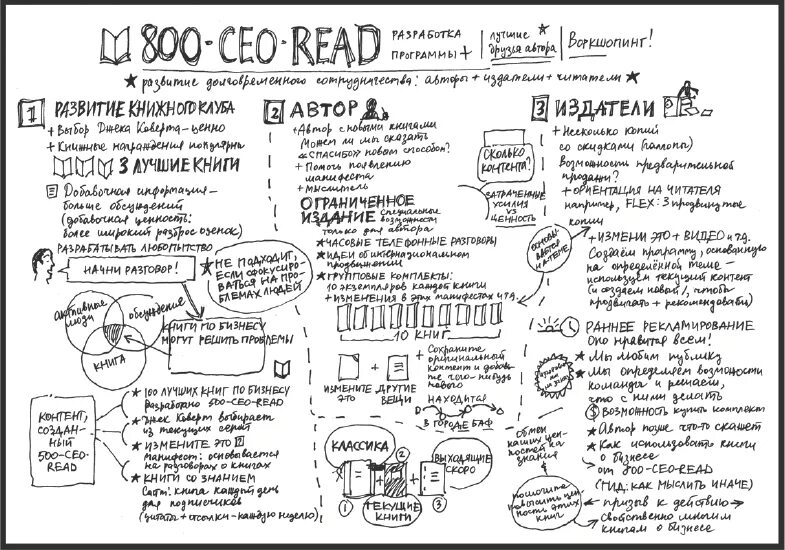 800-CEO-READ
РАЗРАБОТКА
ПРОГРАММЫ +
лучшие
друзья автора
Воркшопинг!
развитие долговременного сотрудничества: авторы + издатели + читатели
1 РАЗВИТИЕ КНИЖНОГО КЛУБА
+ Выбор Джека Коверта – ценно
+ Книжные направления популярны
3 ЛУЧШИЕ КНИГИ
Добавочная информация –
больше обсуждений
(добавочная ценность:
более широкий разброс оценок)
РАЗРАБАТЫВАТЬ ЛЮБОПЫТСТВО
НАЧНИ РАЗГОВОР!
НЕ ПОДХОДИТ,
ЕСЛИ СФОКУСИРО-
ВАТЬСЯ НА ПРО-
БЛЕМАХ ЛЮДЕЙ
активные
люди
обсуждение
КНИГА
КНИГИ ПО БИЗНЕСУ
МОГУТ РЕШИТЬ ПРОБЛЕМЫ
КОНТЕНТ,
СОЗДАН-
НЫЙ
500-CEO-
READ
100 ЛУЧШИХ КНИГ ПО БИЗНЕСУ
Разработано 800-CEO-READ
Джек Коверт выбирает
из текущих серий
ИЗМЕНИТЕ ЭТО
Манифест: основывается
на разговорах о книгах
КНИГИ СО ЗНАНИЕМ
Сайт: книга каждый день
для подписчиков
(цитаты + ссылки – каждую неделю)
2 АВТОР
+ Автор с новыми книгами
Можем ли мы сказать
«СПАСИБО» новым способом?
+ Помочь появлению
манифеста
+ Мыслитель
ОГРАНИЧЕННОЕ
ИЗДАНИЕ
специальные
возможности
только для автора
ЧАСОВЫЕ ТЕЛЕФОННЫЕ РАЗГОВОРЫ
ИДЕИ ОБ ИНТЕРНАЦИОНАЛЬНОМ
продвижении
ГРУППОВЫЕ КОМПЛЕКТЫ:
10 экземпляров каждой книги
+ изменения в этих манифестах и т.д.
10 КНИГ
ИЗМЕНИТЕ
ЭТО
ДРУГИЕ
ВЕЩИ
+ Сохраните
оригинальный
контент и добавь-
те чего-нибудь
нового
НАХОДИТСЯ
В ГОРОДЕ БАФ
КЛАССИКА
2
ВЫХОДЯЩИЕ
СКОРО
1
ТЕКУЩИЕ
КНИГИ
3
СКОЛЬКО
КОНТЕНТА?
ЗАТРАЧЕННЫЕ
УСИЛИЯ
VS
ЦЕННОСТЬ
3 ИЗДАТЕЛИ
+ Несколько копий
со скидками
Возможности предварительной
продажи?
+ ОРИЕНТАЦИЯ НА ЧИТАТЕЛЯ
например, FLEX: 3 продвинутые
копии
+ ИЗМЕНИ ЭТО + ВИДЕО и т.д.
Создаём программу, основанную
на определённой теме –
используем текущий контент
(и создаём новый), чтобы
продвигать + рекомендовать)
РАННЕЕ РЕКЛАМИРОВАНИЕ
Оно нравится всем!
Мы любим публику
Мы определяем возможности
команды и решаем,
что с ними делать
$ ВОЗМОЖНОСТЬ КУПИТЬ КОМПЛЕКТ
Автор тоже что-то скажет
Как использовать книги
о бизнесе
от 800-CEO-READ
(ГИД: КАК МЫСЛИТЬ ИНАЧЕ)
призыв к действию
Свойственно многим
книгам о бизнесе
Обмен
наших цен-
ностей на
знания
помогите
повысить цен-
ности этих
книг